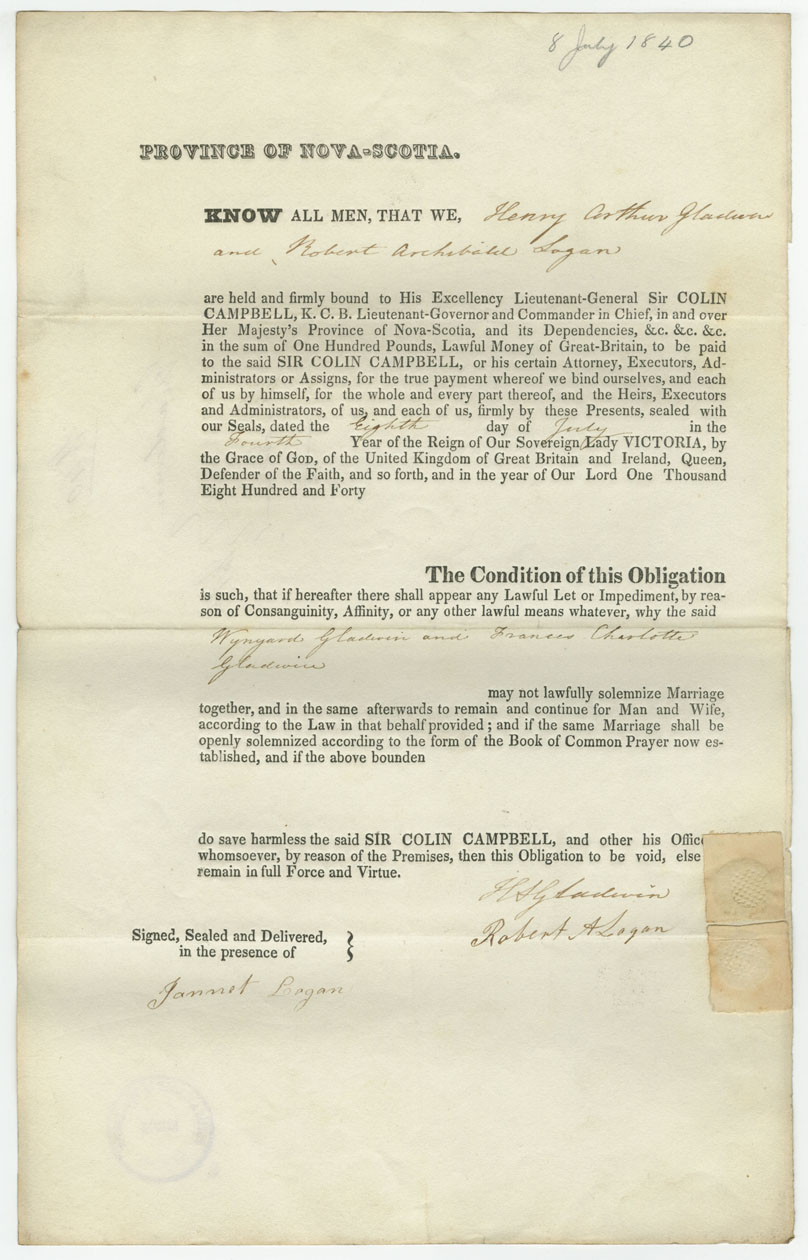 8 July 1840
PROVINCE OF NOVA-SCOTIA.
KNOW ALL MEN, THAT WE, Henry Arthur Gladwin
and Robert Archibald Logan
are held and firmly bound to His Excellency Lieutenant-General Sir COLIN
CAMPBELL, K. C. B. Lieutenant-Governor and Commander in Chief, in and over
Her Majesty's Province of Nova-Scotia, and its Dependencies, &c. &c. &c.
in the sum of One Hundred Pounds, Lawful Money of Great-Britain, to be paid
to the said SIR COLIN CAMPBELL, or his certain Attorney, Executors, Ad-
ministrators or Assigns, for the true payment whereof we bind ourselves, and each
of us by himself, for the whole and every part thereof, and the Heirs, Executors
and Administrators, of us, and each of us, firmly by these Presents, sealed with
our Seals, dated the Eighth day of July in the
Fourth Year of the Reign of Our Sovereign Lady VICTORIA, by
the Grace of GOD, of the United Kingdom of Great Britain and Ireland, Queen,
Defender of the Faith, and so forth, and in the year of Our Lord One Thousand
Eight Hundred and Forty
The Condition of this Obligation
is such, that if hereafter there shall appear any Lawful Let or Impediment, by rea-
son of Consanguinity, Affinity, or any other lawful means whatever, why the said
Wynyard Gladwin and Frances Charlotte
Gladwin
may not lawfully solemnize Marriage
together, and in the same afterwards to remain and continue for Man and Wife,
according to the Law in that behalf provided; and if the same Marriage shall be
openly solemnized according to the form of the Book of Common Prayer now es-
tablished, and if the above bounden
do save harmless the said SIR COLIN CAMPBELL, and other his Office
whomsoever, by reason of the Premises, then this Obligation to be void, else
remain in full Force and Virtue.
HAGladwin
Robert A Logan
Signed, Sealed and Delivered,
in the presence of
Jannet Logan